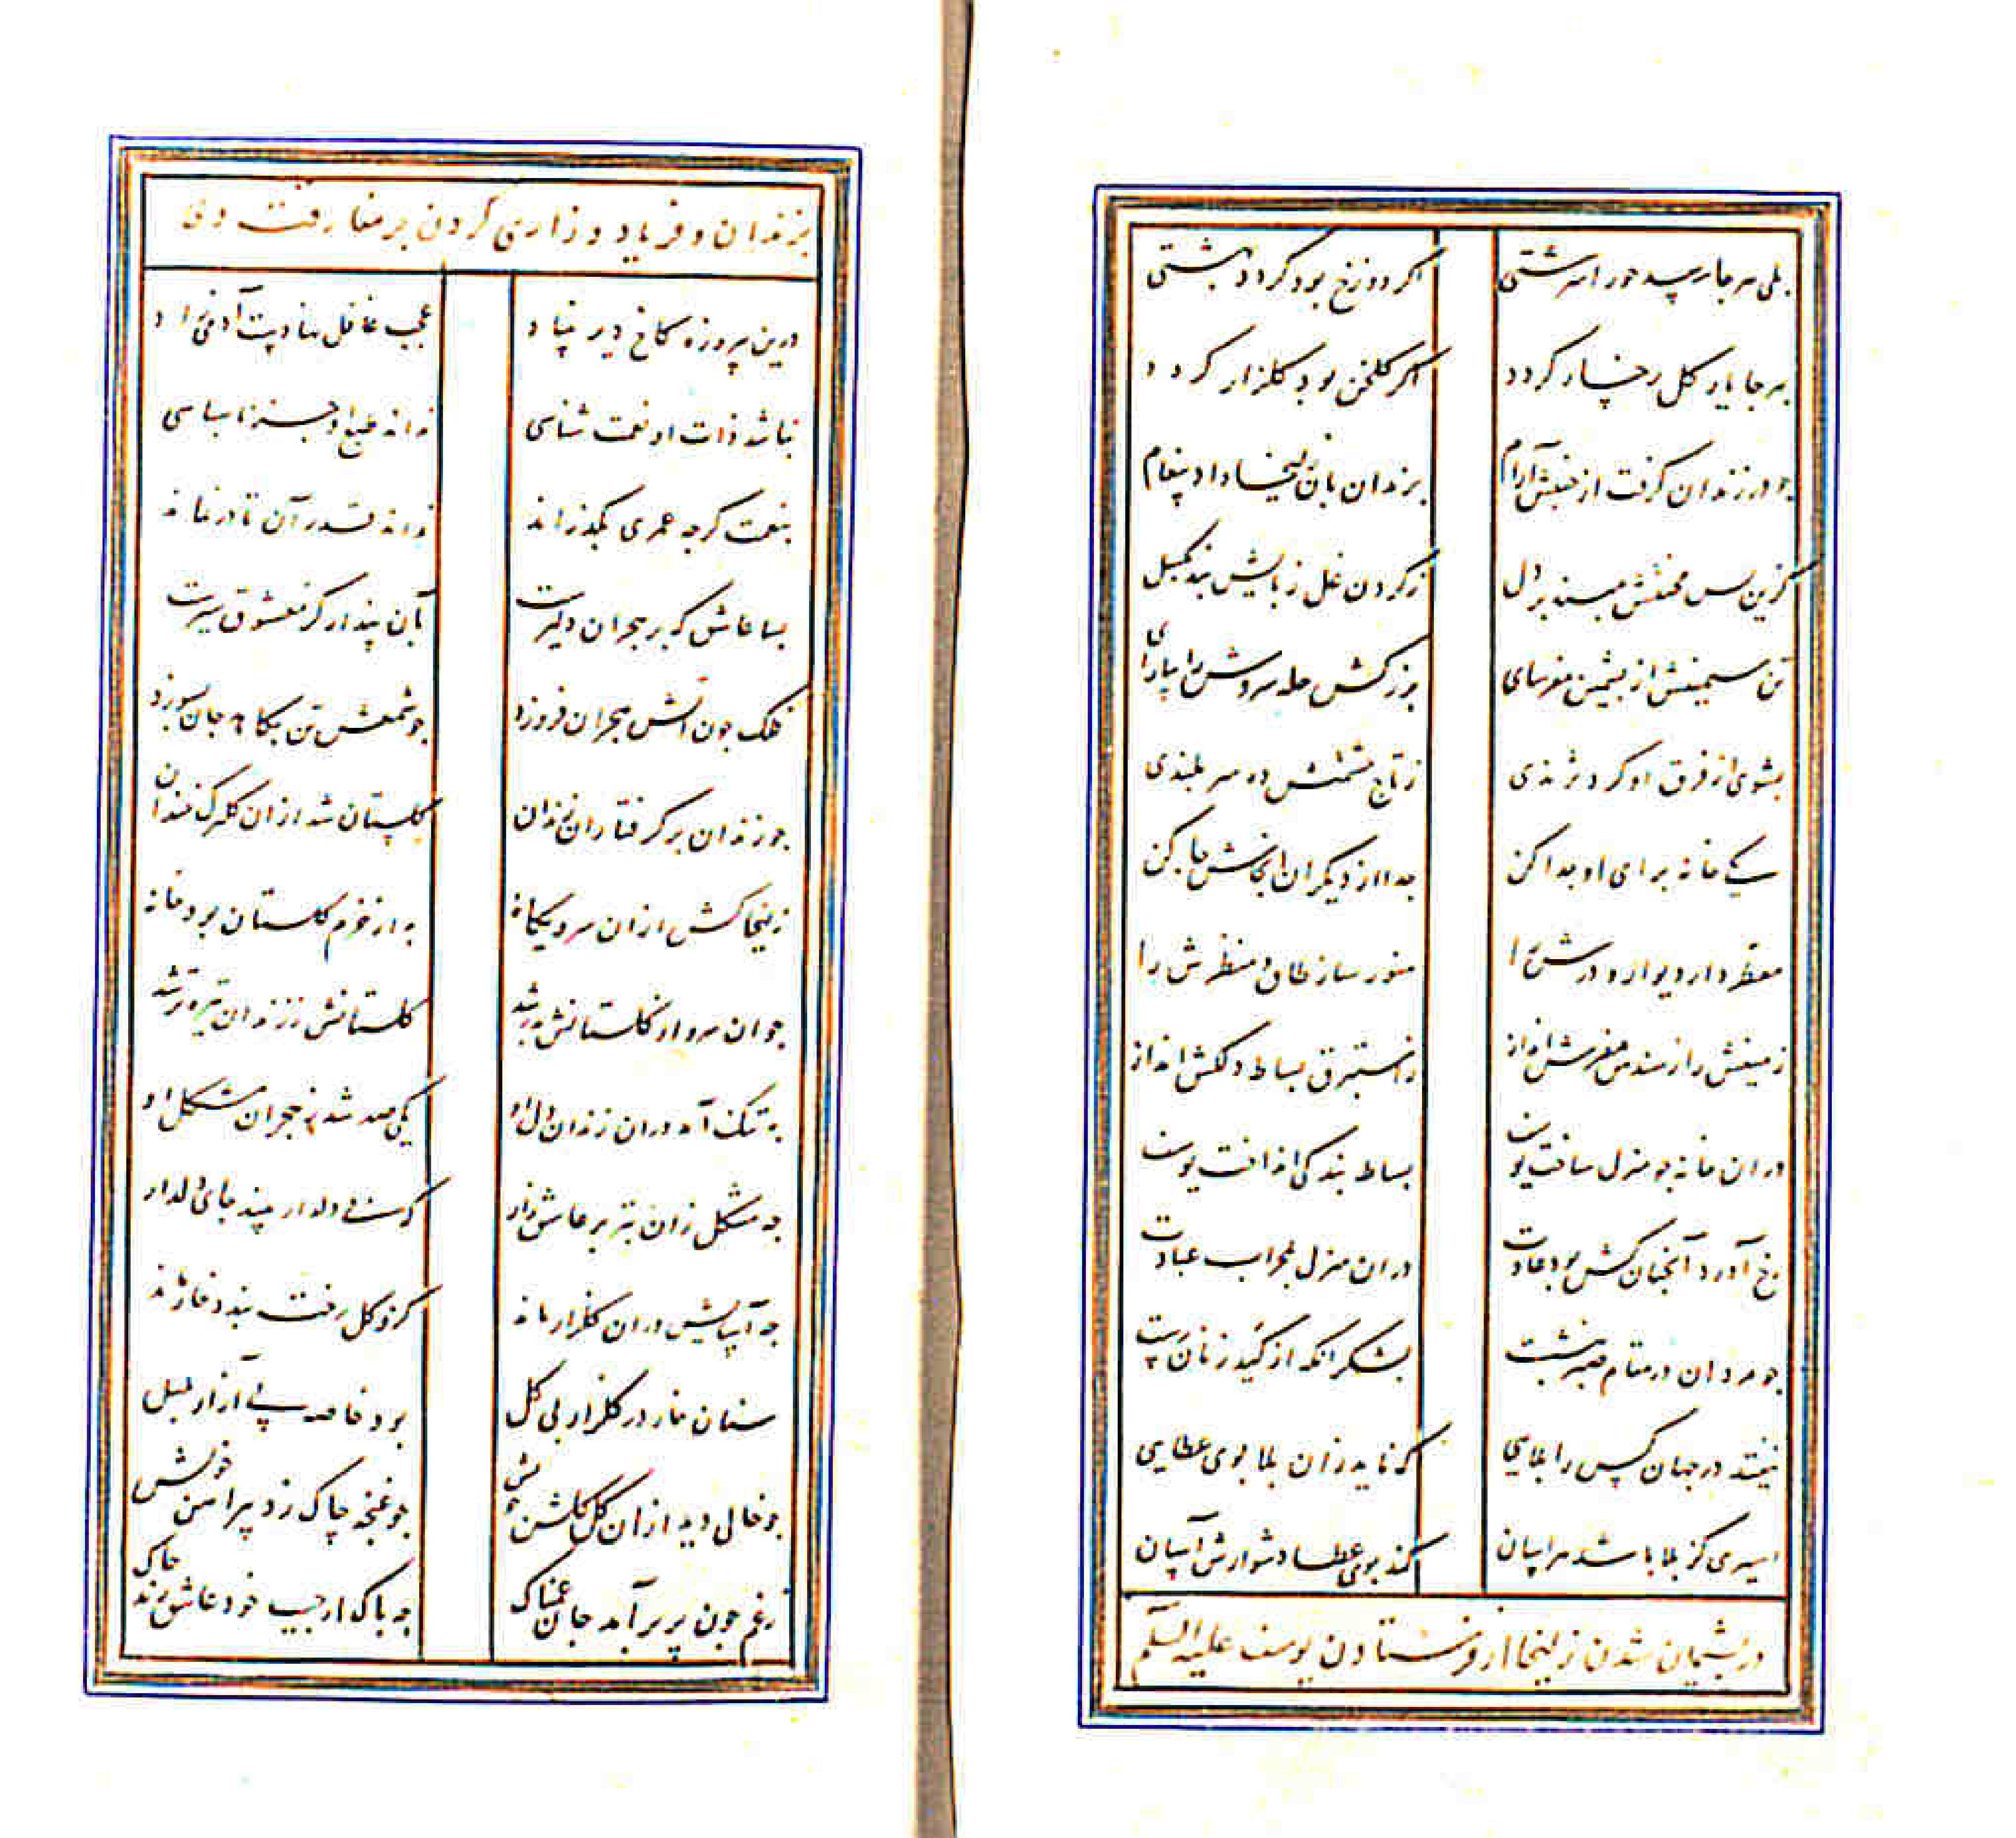 بلی هر جا رسد حور اسرشتی اکر دوزخ بود کردد بهشتی
بهر جا یار کل رخسار کردد اکر کلخن بود کلزار کردد
جو در زندان کرفت از جنبش آرام بزندان بان زلیخا داد پیغام
کزین پس محنتش مپسند بر دل ز کردن غل ز پایش بند بکسل
تن سیمینش از پشمین مفرسای بزرکش حله سروش را بیارای
بشوی از فرق او کرد نژندی ز تاج حشمتش ده سر بلندی
یکی خانه برای او جدا کن جدا از دیکران آنجاش جا کن
معطر دار دیوار و درش را منور ساز طاق و منظرش را
زمینش را ز سندس مفرش انداز ز استبرق بساط دلکش انداز
در ان خانه جو منزل ساخت یوسف بساط بندکی انداخت یوسف
رخ آورد آنجنان کش بود عادت در ان منزل بمحراب عبادت
جو مردان در مقام صبر بنشست بشکر انکه از کید زنان رست
نیفتد در جهان کس را بلایی که ناید زان بلا بوی عطایی
اسیری کز بلا باشد هراسان کند بوی عطا دشوارش آسان
در پشیمان شدن زلیخا از فرستادن یوسف علیه السلم
بزندان و فریاد و زاری کردن بر مفارقت وی
درین پیروزه کاخ دیر بنیاد عجب غافل نهادیست آدمی زاد
نباشد ذات او نعمت شناسی نداند طبع او جز ناسپاسی
بنعمت کرجه عمری بکذراند نداند قدر آن تا در نماند
بسا عاشق که بر هجران دلیرست بآن پندار کز معشوق سیرست
فلک جون آتش هجران فروزد جو شمعش تن بکاهد جان بسوزد
جو زندان بر کرفتاران زندان کلستان شد ازان کلبرک خندان
زلیخا کش ازان سرو یکانه به از خرم کلستان بود خانه
جو ان سرو از کلستانش بدر شد کلستانش ز زندان تیره تر شد
به تنک آمد در ان زندان دل او یکی صد شد ز هجران مشکل او
جه مشکل زان بتر بر عاشق زار که بی دلدار بیند جای دلدار
جه آسایش در ان کلزار ماند کزو کل رخت بندد خار ماند
سنان خار در کلزار بی کل بود خاصه پی آزار بلبل
جو خالی دید ازان کل کلشن خویش جو غنجه جاک زد پیراهن خویش
ز غم جون بر بر آمد جان غمناک جه باک ار جیب خود عاشق زند جاک